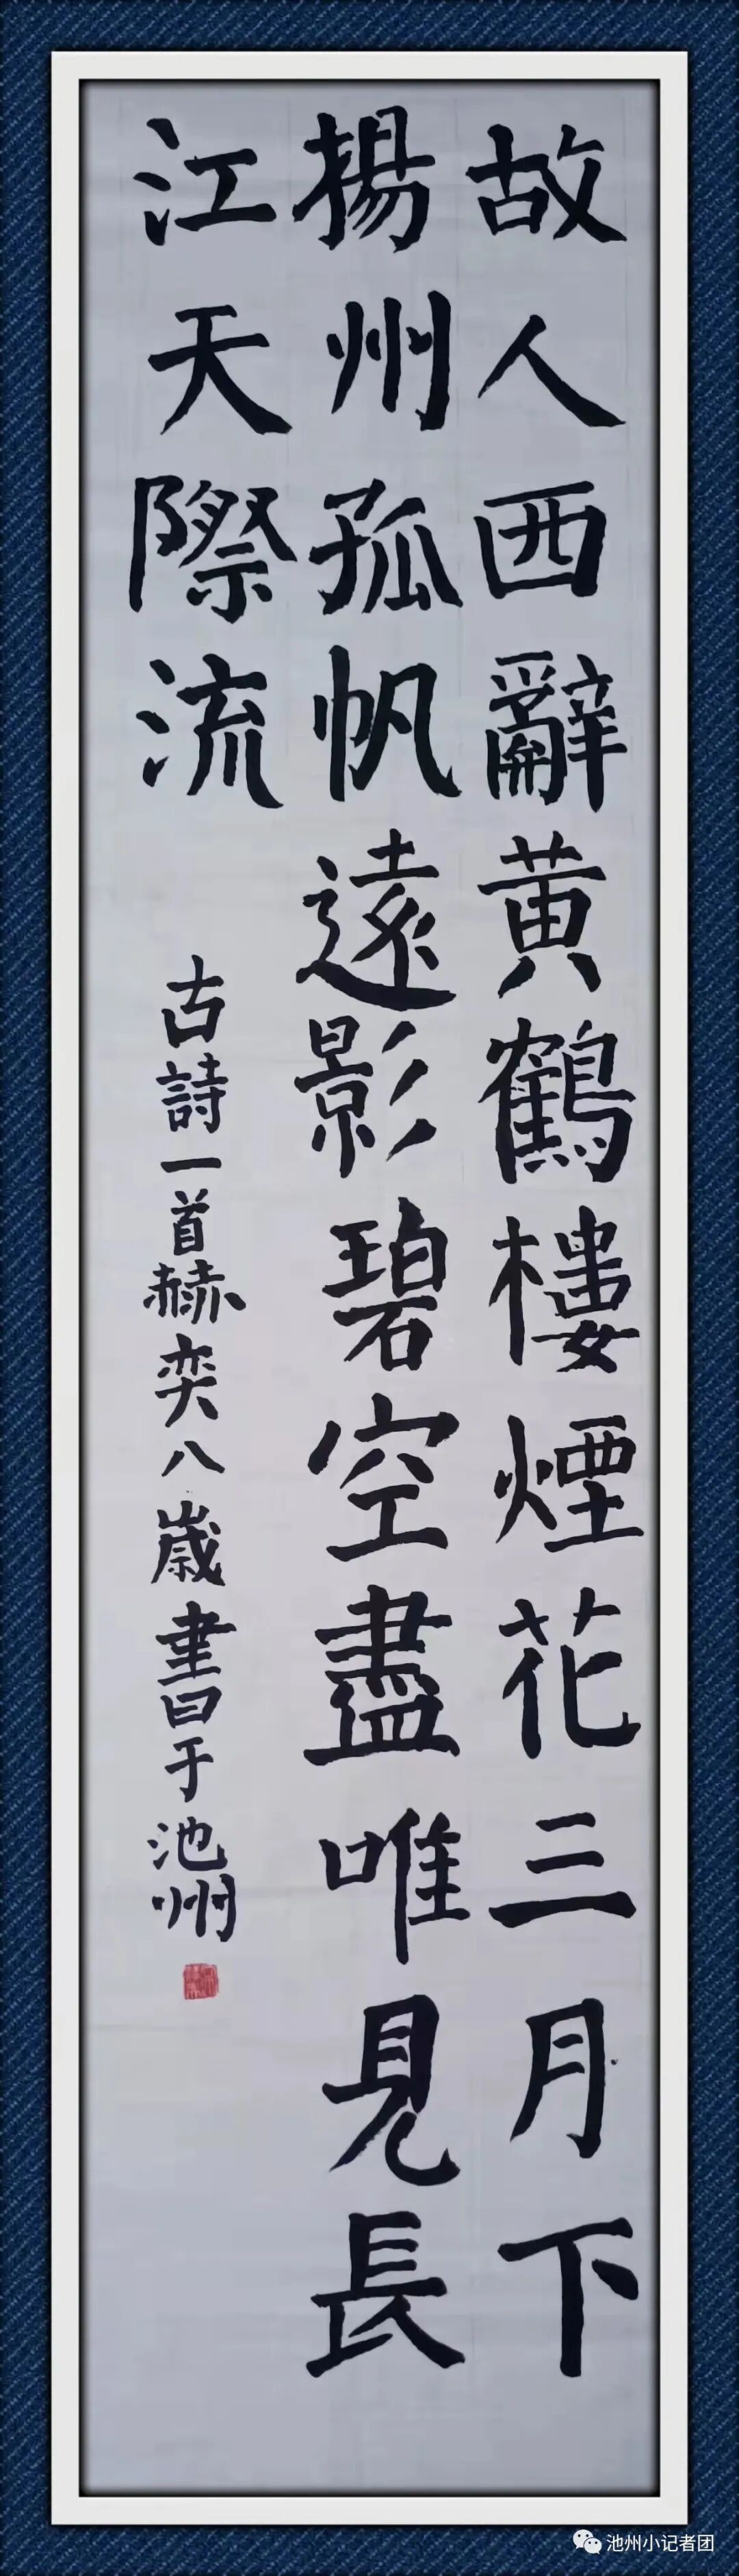 故人西辭黄鶴樓煙花三月下
揚州孤帆遠影碧空盡唯見長
江天際流
古詩一首赫奕八歲書于池州
池州小记者团